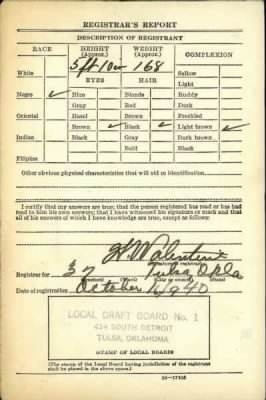 REGISTRAR'S REPORT
DESCRIPTION OF REGISTRANT
RACE HEIGHT (Approx.) WEIGHT (Approx.) COMPLEXION
White 5 ft 10 in 168 Sallow
EYES HAIR Light
Negro ✓ Blue Blonde Ruddy
Gray Red Dark
Oriental Hazel Brown Freckled
Brown ✓ Black ✓ Light brown ✓
Indian Black Gray Dark brown
Bald Black
Filipino
Other obvious physical characteristics that will aid in identification
I certify that my answers are true; that the person registered has read or has had
read to him his own answers; that I have witnessed his signature or mark and that
all of his answers of which I have knowledge are true, except as follows:
(Signature of registrar)
Registrar for 37 Tulsa, Okla
(Precinct) (Ward) (City or county) (State)
Date of registration October 16, 1940
LOCAL DRAFT BOARD No. 1
414 SOUTH DETROIT
TULSA, OKLAHOMA
(STAMP OF LOCAL BOARD)
(The stamp of the Local Board having jurisdiction of the registrant
shall be placed in the above space.)